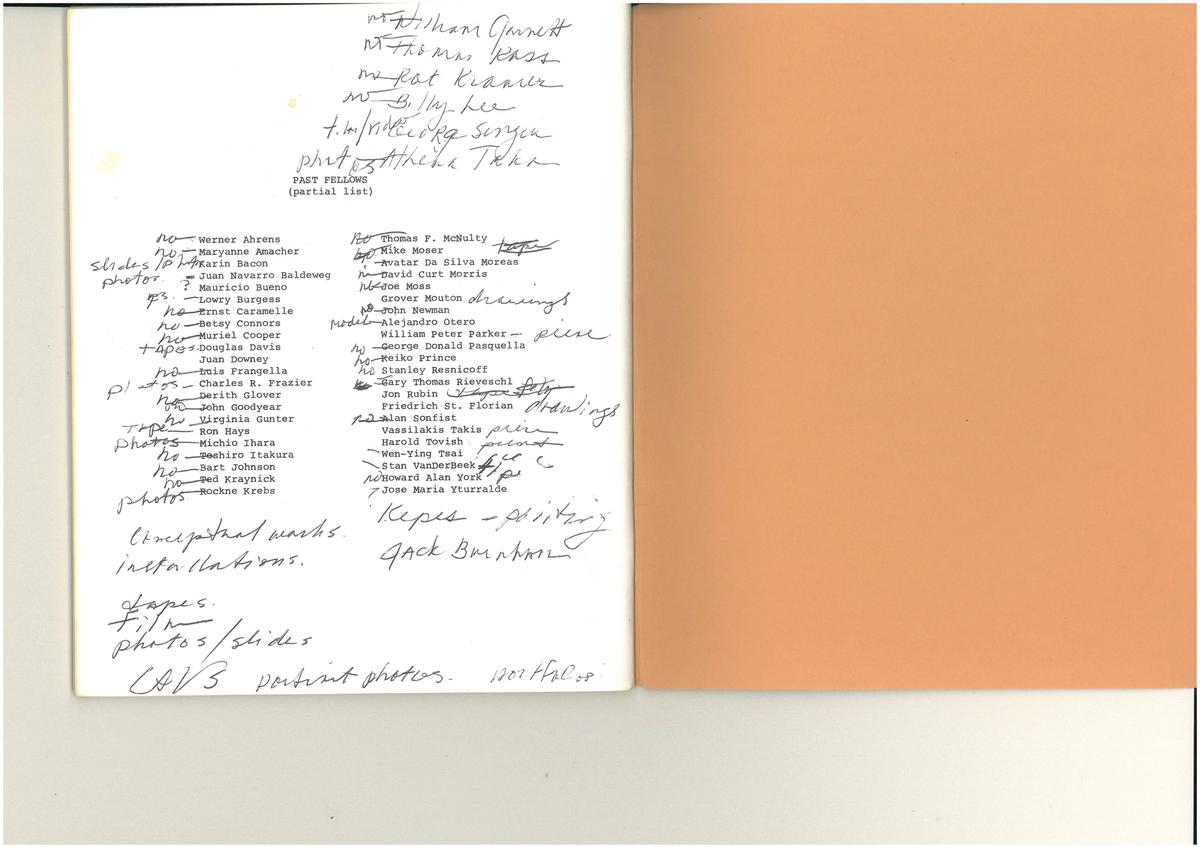 no William Garnett
no Thomas Ross
no Rot Kramer
no Billy Lee
film/video George Singer
photos Athena Taka
PAST FELLOWS
(partial list)
no Werner Ahrens
no Maryanne Amacher
slides/ Karin Bacon
photos Juan Navarro Baldeweg
? Mauricio Bueno
Lowry Burgess
no Ernst Caramelle
no Betsy Connors
no Muriel Cooper
tapes Douglas Davis
Juan Downey
no Luis Frangella
photos Charles R. Frazier
no Derith Glover
no John Goodyear
no Virginia Gunter
Tape Ron Hays
photos Michio Ihara
no Toshiro Itakura
no Bart Johnson
no Ted Kraynick
photos Rockne Krebs
no Thomas F. McNulty
no Mike Moser tape
Avatar Da Silva Moreas
David Curt Morris
no Joe Moss
Grover Mouton drawings
no John Newman
model Alejandro Otero
William Peter Parker - piece
no George Donald Pasquella
no Keiko Prince
no Stanley Resnicoff
Gary Thomas Rieveschl
Jon Rubin
Friedrich St. Florian drawings
no Alan Sonfist
Vassilakis Takis piece
Harold Tovish
Wen-Ying Tsai
Stan VanDerBeek
no Howard Alan York
? Jose Maria Yturralde
Kepes - painting
Jack Burnham
Conceptual works.
installations.
tapes.
Film
photos/slides
CAVS portrait photos. portfolios